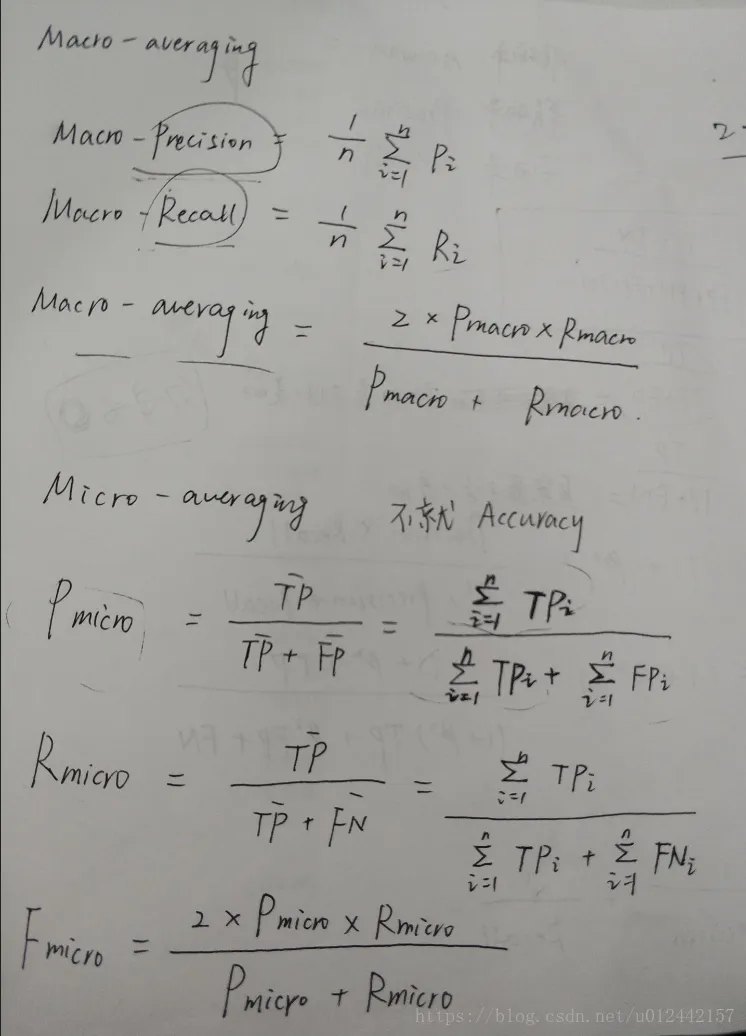 Macro-averaging
Macro-Precision = 1/n ∑_{i=1}^{n} P_i
Macro-Recall = 1/n ∑_{i=1}^{n} R_i
Macro-averaging = (2 × Pmacro × Rmacro) / (Pmacro + Rmacro).
Micro-averaging 不就 Accuracy
P_micro = T̄P̄ / (T̄P̄ + F̄P̄) = ∑_{i=1}^{n} TP_i / (∑_{i=1}^{n} TP_i + ∑_{i=1}^{n} FP_i)
R_micro = T̄P̄ / (T̄P̄ + F̄N̄) = ∑_{i=1}^{n} TP_i / (∑_{i=1}^{n} TP_i + ∑_{i=1}^{n} FN_i)
F_micro = (2 × P_micro × R_micro) / (P_micro + R_micro)
https://blog.csdn.net/u012442157